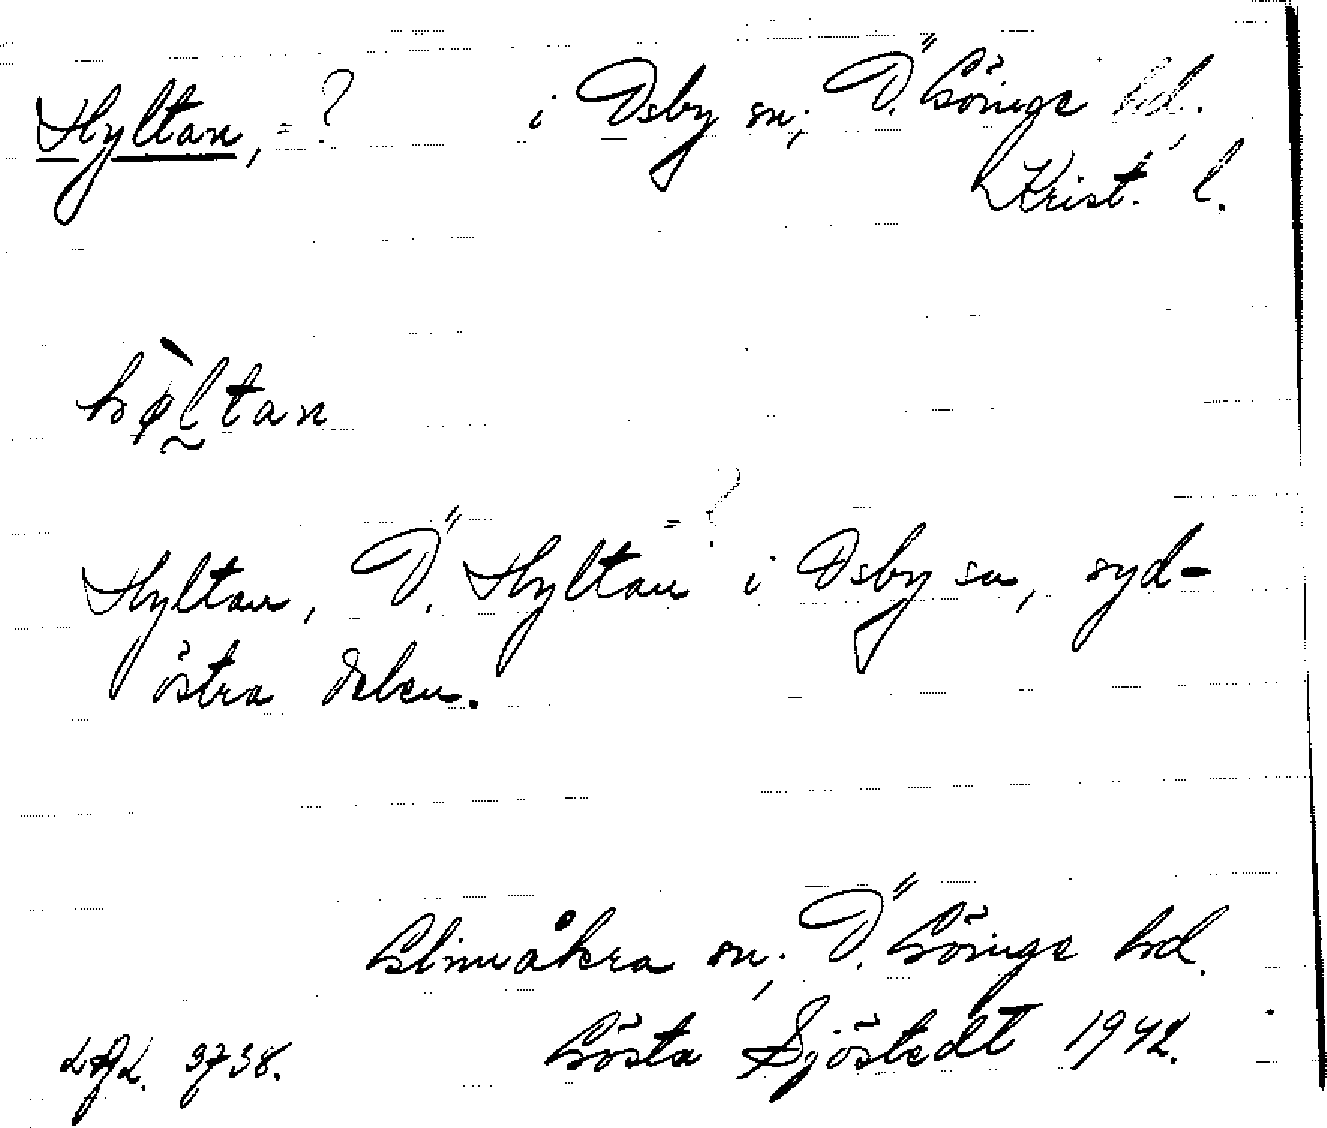 Hyltan, = ? i Osby sn, Ö. Göinge hd,
Krist. l.
hø̀ltan
= ?
Hyltan, Ö. Hyltan i Osby sn, syd-
östra delen.
Glimåkra sn, Ö. Göinge hd.
Gösta Sjöstedt 1942.
3738.